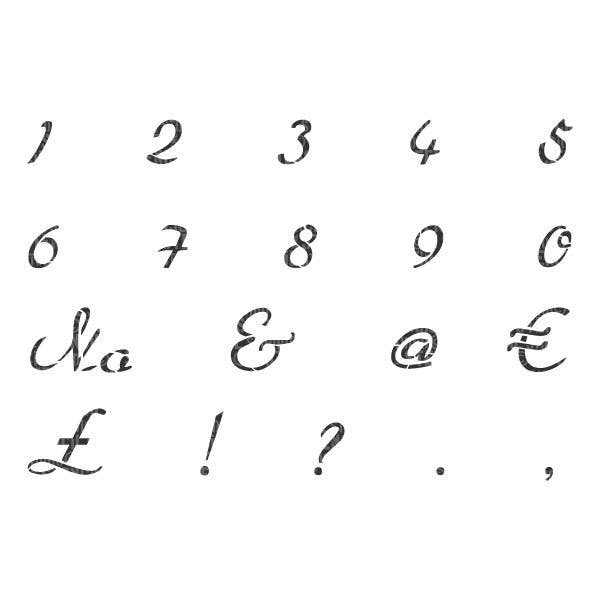 1 2 3 4 5
6 7 8 9 0
No & @ €
£ ! ? . ,